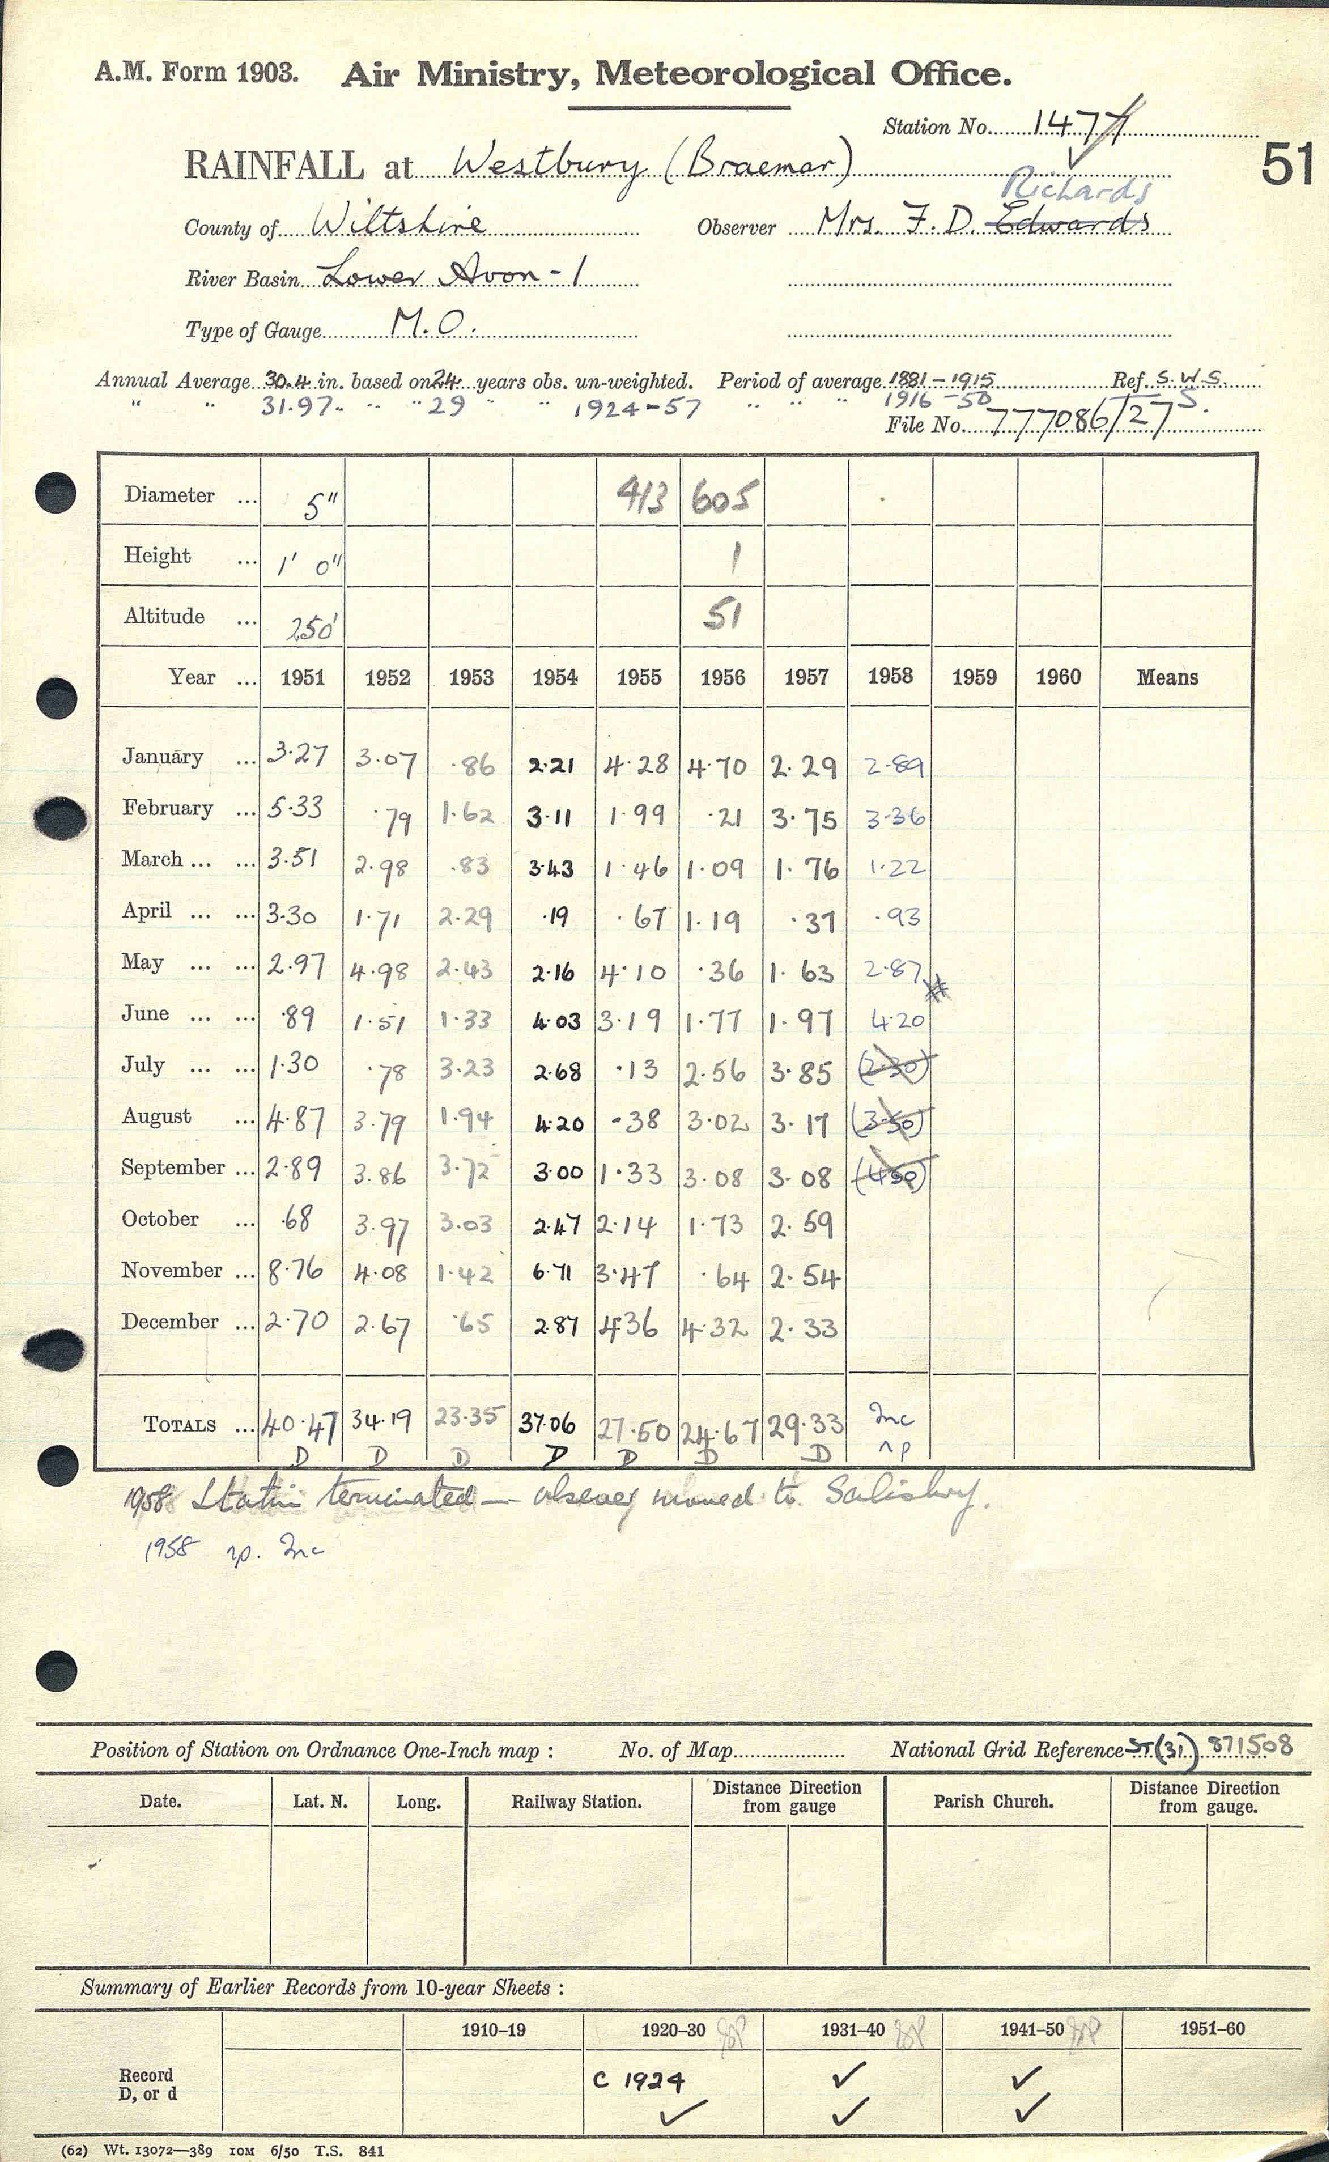 A.M. Form 1903. Air Ministry, Meteorological Office.
Station No. 1477
51
RAINFALL at Westbury (Braemar)
Richards
County of Wiltshire Observer Mrs. F. D. Edwards
River Basin Lower Avon - 1
Type of Gauge M.O.
Annual Average 30.4 in. based on 24 years obs. un-weighted. Period of average 1881-1915 Ref. S.W.S.
" " 31.97 " " " 29 " " 1924-57 " " " 1916-50 S.
File No. 777086/27
Diameter ... 5" 413 605
Height ... 1' 0" 1
Altitude ... 250' 51
Year ... 1951 1952 1953 1954 1955 1956 1957 1958 1959 1960 Means
January ... 3.27 3.07 .86 2.21 4.28 4.70 2.29 2.89
February ... 5.33 .79 1.62 3.11 1.99 .21 3.75 3.36
March ... ... 3.51 2.98 .83 3.43 1.46 1.09 1.76 1.22
April ... ... 3.30 1.71 2.29 .19 .67 1.19 .37 .93
May ... ... 2.97 4.98 2.43 2.16 4.10 .36 1.63 2.87
June ... ... .89 1.51 1.33 4.03 3.19 1.77 1.97 4.20
July ... ... 1.30 .78 3.23 2.68 .13 2.56 3.85 (2.30)
August ... 4.87 3.79 1.94 4.20 .38 3.02 3.17 (3.50)
September ... 2.89 3.86 3.72 3.00 1.33 3.08 3.08 (4.50)
October ... .68 3.97 3.03 2.47 2.14 1.73 2.59
November ... 8.76 4.08 1.42 6.71 3.47 .64 2.54
December ... 2.70 2.67 .65 2.87 4.36 4.32 2.33
TOTALS ... 40.47 34.19 23.35 37.06 27.50 24.67 29.33 Inc
D D D D D D D np
1958 Station terminated — observer moved to Salisbury.
1958 np. Inc
Position of Station on Ordnance One-Inch map : No. of Map National Grid Reference ST (31) 871508
Date. Lat. N. Long. Railway Station. Distance Direction from gauge Parish Church. Distance Direction from gauge.
Summary of Earlier Records from 10-year Sheets :
1910-19 1920-30 1931-40 1941-50 1951-60
Record C 1924 ✓ ✓
D, or d ✓ ✓ ✓
(62) Wt. 13072—389 10M 6/50 T.S. 841